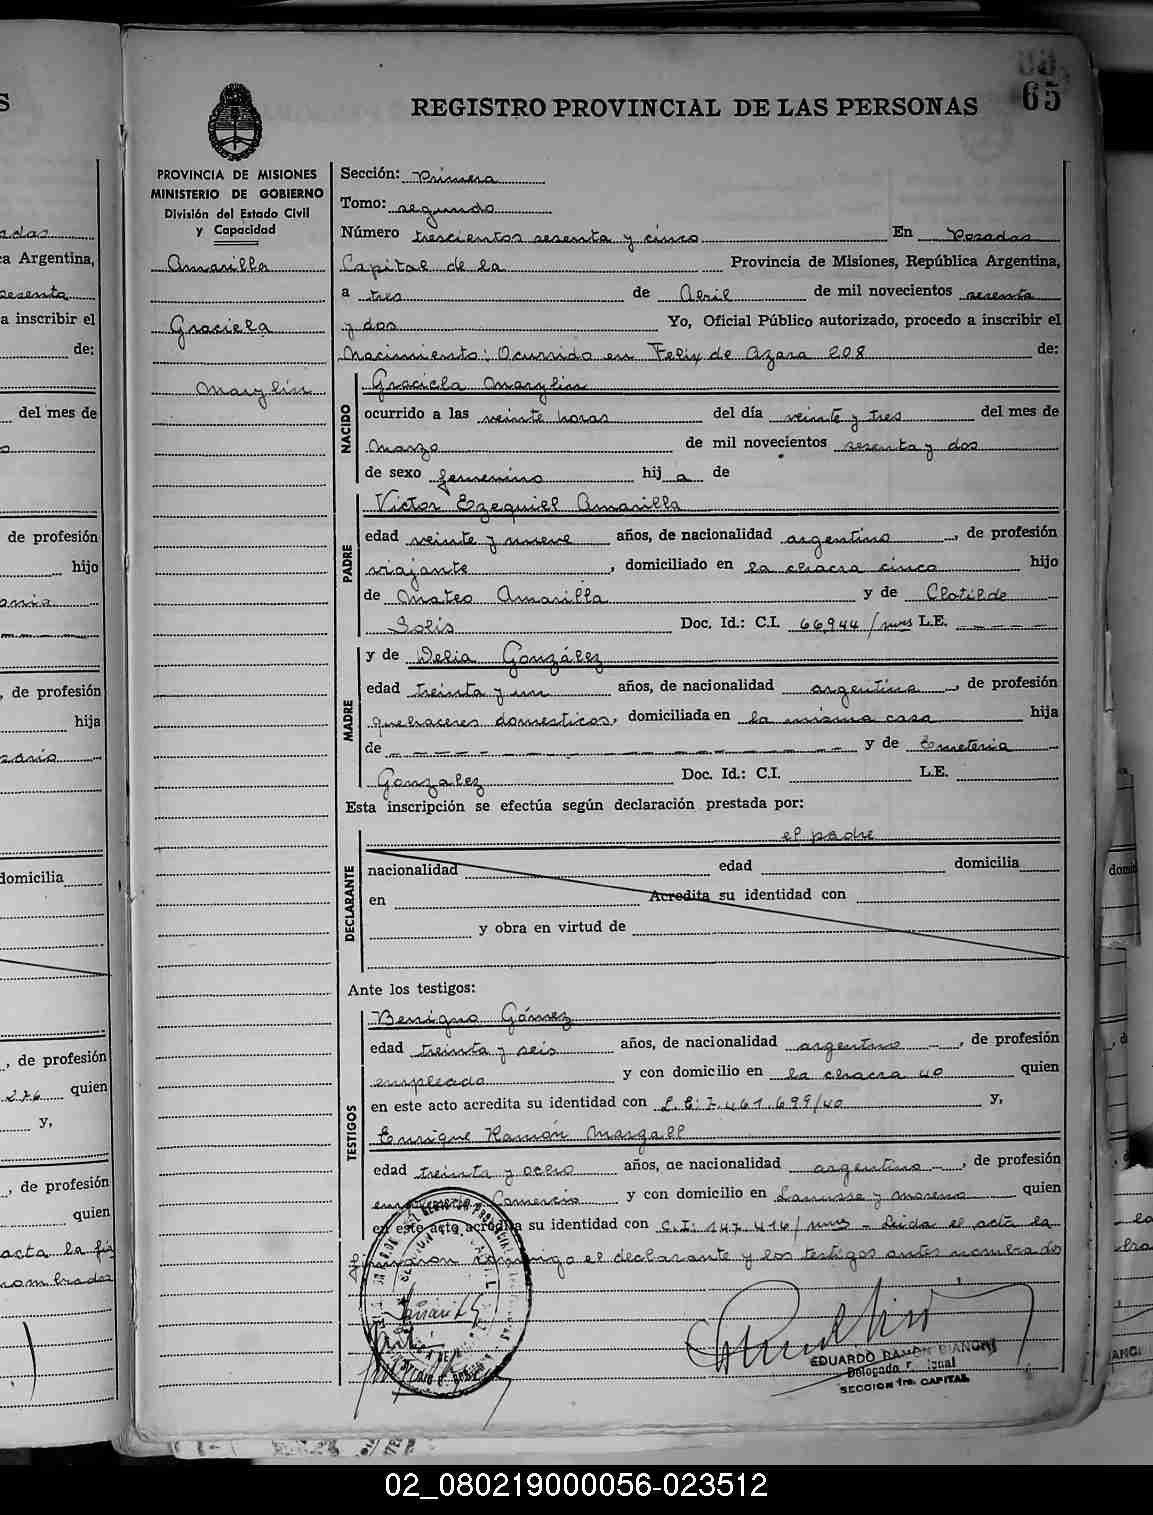 65
REGISTRO PROVINCIAL DE LAS PERSONAS
PROVINCIA DE MISIONES
MINISTERIO DE GOBIERNO
División del Estado Civil
y Capacidad
Amarilla
Graciela
Marylin
Sección: Primera
Tomo: segundo
Número trescientos sesenta y cinco En Posadas
Capital de la Provincia de Misiones, República Argentina,
a tres de Abril de mil novecientos sesenta
y dos Yo, Oficial Público autorizado, procedo a inscribir el
Nacimiento: Ocurrido en Felix de Azara 208 de:
NACIDO
Graciela Marylin
ocurrido a las veinte horas del día veinte y tres del mes de
Marzo de mil novecientos sesenta y dos
de sexo femenino hij a de
PADRE
Victor Ezequiel Amarilla
edad veinte y nueve años, de nacionalidad argentino, de profesión
viajante, domiciliado en la chacra cinco hijo
de Mateo Amarilla y de Clotilde
Solis Doc. Id.: C.I. 66944/mnes L.E. – – – – –
MADRE
y de Delia González
edad treinta y un años, de nacionalidad argentina –, de profesión
quehaceres domesticos, domiciliada en la misma casa hija
de – – – – – – – – – – – – y de Emeteria
Gonzalez Doc. Id.: C.I. L.E.
Esta inscripción se efectúa según declaración prestada por:
DECLARANTE
el padre
nacionalidad edad domicilia
en Acredita su identidad con
y obra en virtud de
Ante los testigos:
TESTIGOS
Benigno Gómez
edad treinta y seis años, de nacionalidad argentino –, de profesión
empleado y con domicilio en la chacra 40 quien
en este acto acredita su identidad con L.E: 7.461.699/40 y,
Enrique Ramón Margall
edad treinta y ocho años, de nacionalidad argentino –, de profesión
Comercio y con domicilio en Lanusse y Moreno quien
en este acto acredita su identidad con C.I: 147.416/mnes – Leida el acta la
firmaron conmigo el declarante y los testigos antes nombrados
EDUARDO RAMON BIANCHI
Delegado
SECCION 1ra. CAPITAL
02_080219000056-023512